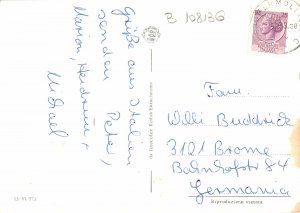 B 10813G
Grüße aus Italien
senden Peter,
Marion, Heidrun,
Michael
Fam.
Willi Buddride
3121 Brome
Bahnhofstr 84
Germania
Riproduzione vietata